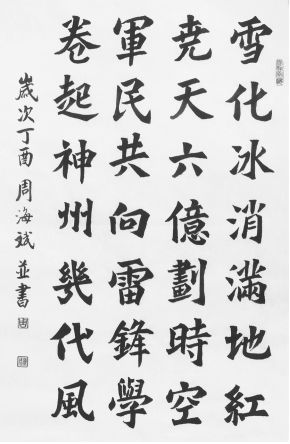 雪化冰消滿地紅
尭天六億劃時空
軍民共向雷鋒學
卷起神州幾代風
歲次丁酉周海斌並書